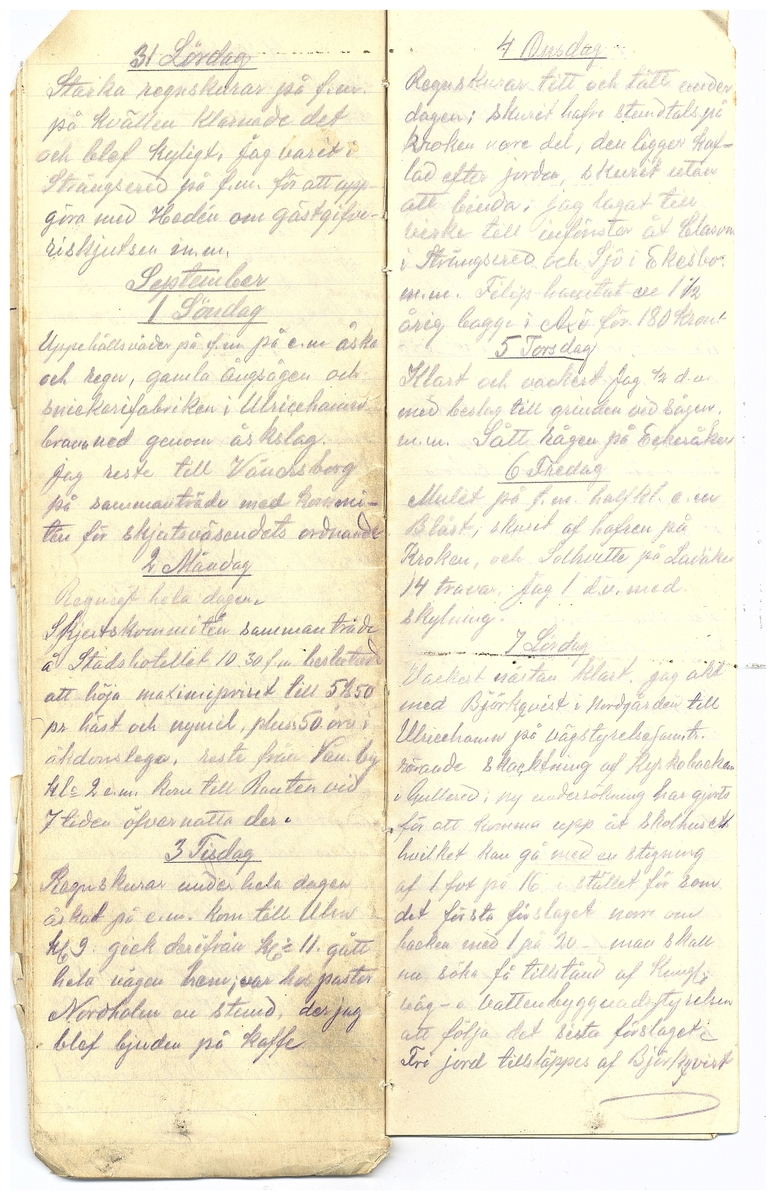 31 Lördag
Starka regnskurar på f.m.
på kvällen klarnade det
och blef kyligt. Jag varit i
Strängsered på f.m. för att upp-
göra med Hedén om gästgifve-
riskjutsen m.m.
September
1 Söndag
Uppehållsväder på f.m. på e.m. åska
och regn, gamla ångsågen och
snickerifabriken i Ulricehamn
brann ned genom åskslag.
Jag reste till Vänersborg
på sammanträde med kommi-
tén för skjutsväsendets ordnande
2 Måndag
Regnigt hela dagen.
Skjutskommitén sammanträde
å Stadshotellet 10.30 f.m. beslutade
att höja maximipriset till 5 à 50
pr häst och nymil, plus 50 öre i
åkdonslega. reste från Vän.bg
kl: 2 e.m. kom till Ranten vid
7 tiden öfvernatta der.
3 Tisdag
Regnskurar under hela dagen
åskat på e.m. kom till Ulrn
kl. 9. geck derifrån kl: 11. gått
hela vägen hem; var hos pastor
Nordholm en stund, der jag
blef bjuden på kaffe
4 Onsdag
Regnskurar tätt och tätt under
dagen; skurit hafre stundtals på
Kroken norre del, den ligger kaf-
lad efter jorden, skurit utan
att binda; jag lagat till
virke till infönster åt Clason
i Strängsered och Sjö i Ekesbo.
m.m. Filip hämtat en 1 1/2
årig bagge i för 180 kron!
5 Torsdag
Klart och vackert. Jag 1/2 d.v.
med beslag till grinden ved sågen.
m.m. Sått rågen på Eekeråken
6 Fredag
Mulet på f.m. halfkl. e.m
Blåst; skurit af hafren på
Kroken, och Solhvete på Ladåker
14 travar. Jag 1 d.v. med
skylning.
7 Lördag
Vackert nästan klart. jag åkt
med Björkqvist i Nordgården till
Ulricehamn på vägstyrelsesamtr.
rörande skacktning af Kyrkobacken
i Gullered; ny undersökning har gjorts
för att komma upp åt skolhuset
hvilket kan gå med en stigning
af 1 fot på 16 i stället för som
det första förslaget norr om
backen med 1 på 20 – man skall
nu söka få tillstånd af Kungl:
väg- o vattenbyggnadsstyrelsen
att följa det sista förslaget:
Fri jord tillsläppes af Björkqvist